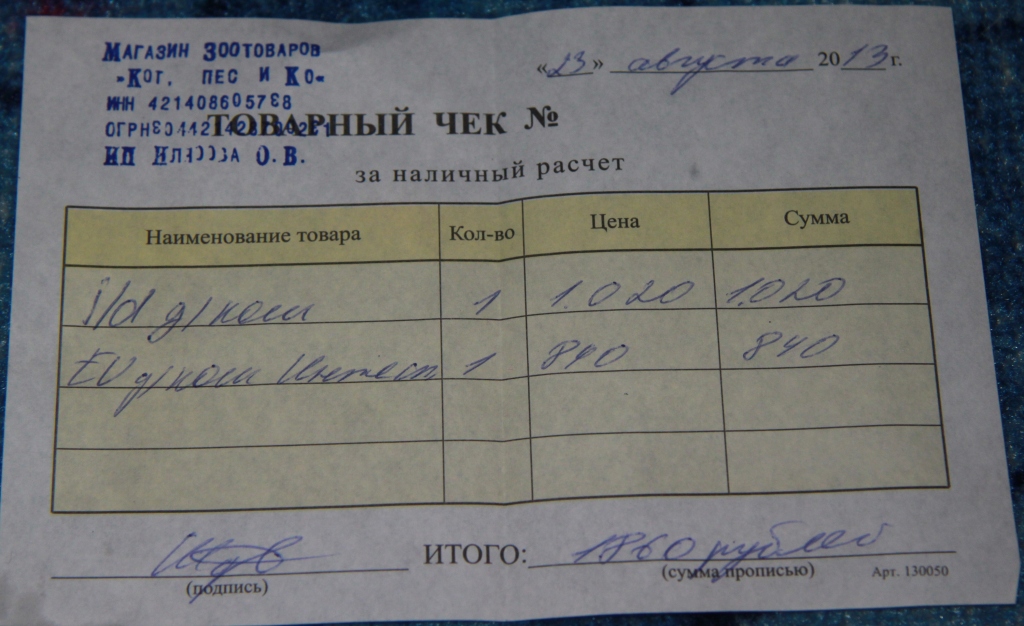 Магазин Зоотоваров
"Кот, пес и Ко"
«23» августа 2013 г.
ИНН 421408605788
ТОВАРНЫЙ ЧЕК №
ИП О.В.
за наличный расчет
Наименование товара Кол-во Цена Сумма
i/d д/кош 1 1.020 1.020
EV д/кош Интест 1 840 840
ИТОГО: 1860 рублей
(подпись) (сумма прописью) Арт. 130050